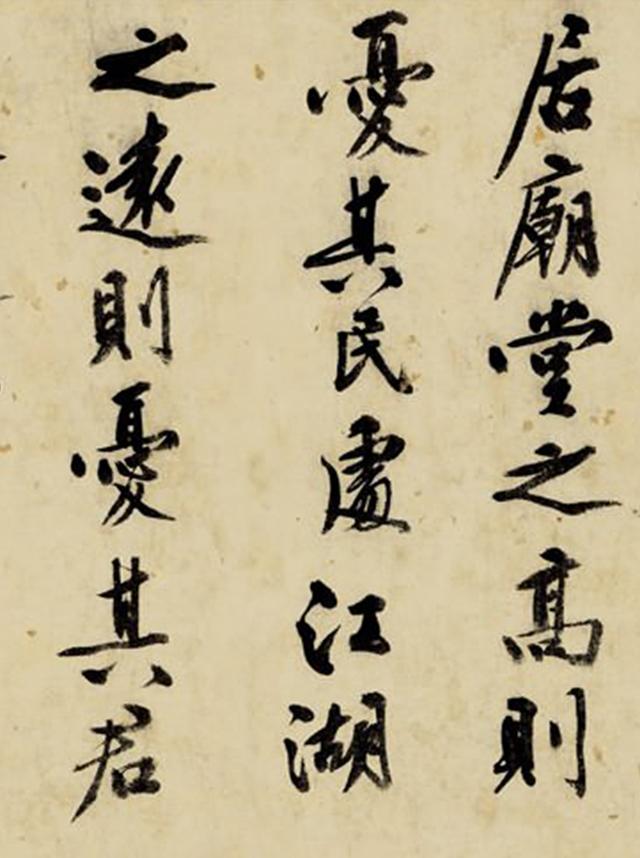 居廟堂之高則
憂其民處江湖
之遠則憂其君